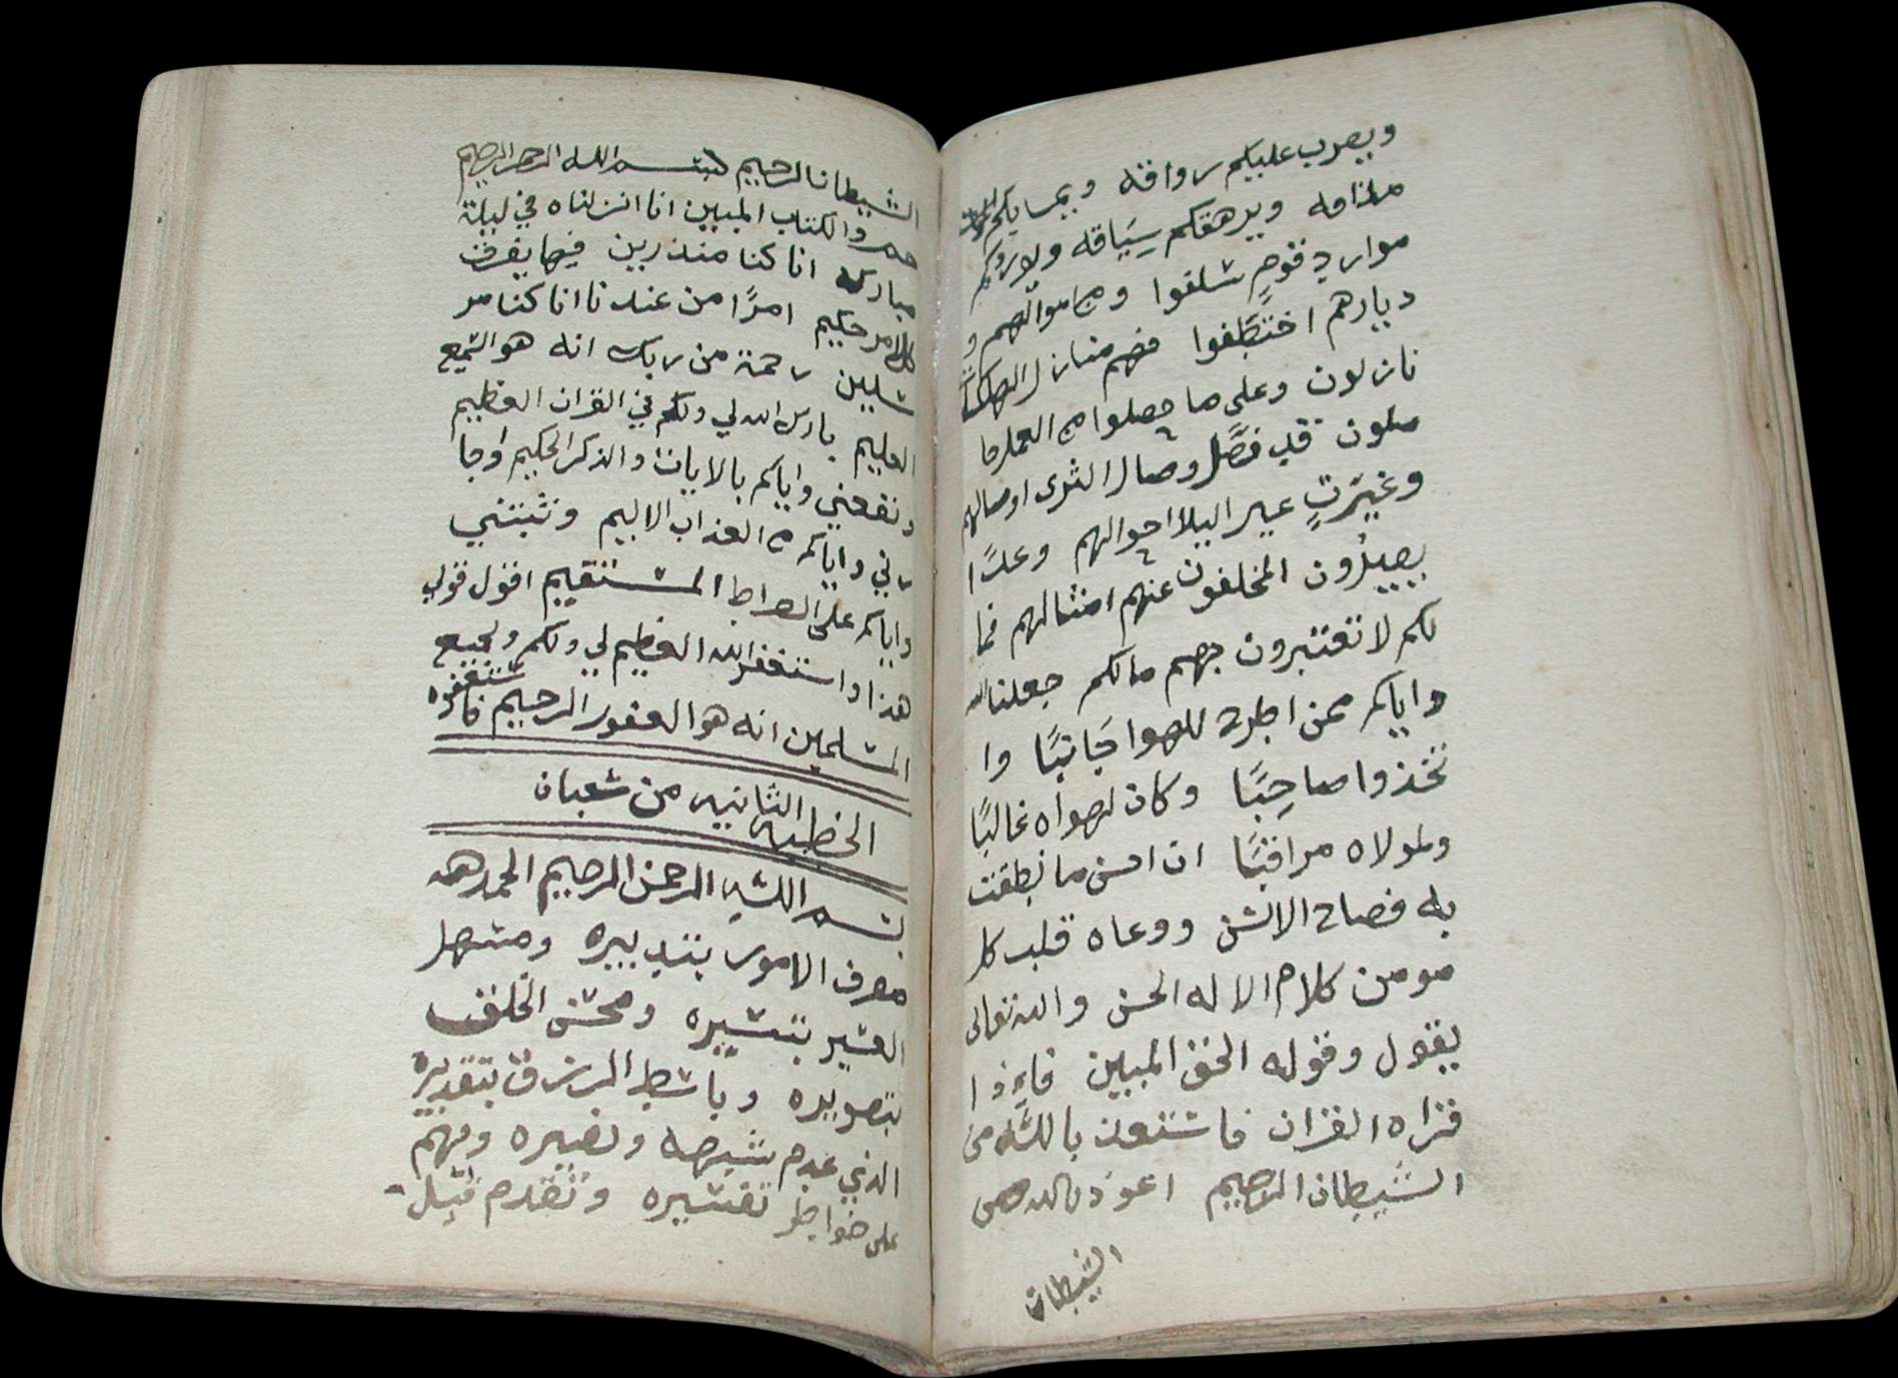 ويضرب عليكم رواقه ويحسايكم الموت
مذاقه ويرهقكم سياقه ويوردكم
موارد قوم سلفوا ومن اموالهم و
ديارهم اختطفوا فهم منازل الهلكا
نازلون وعلى ما حصلوا من العمل حا
صلون قد فصَّل وصال الثرى اوصالهم
وغيَّرت غير البلا احوالهم وغدًا
يصيرون المخلفون عنهم امثالهم فما
لكم لا تعتبرون بهم مالكم جعلنا الله
واياكم ممن اطرح للهوا جَانبًا وا
تخذوا صاحِبًا وكان لهواه غالبًا
ولمولاه مراقبًا ان احسن ما نطقت
به فصاح الالسن ووعاه قلب كل
مومن كلام الاله الحسن والله تعالى
يقول وقوله الحق المبين فاءِذا
قراه القران فاستعذ بالله من
الشيطان الرجيم اعوذ بالله من
الشيطان
الشيطان الرجيم بسم الله الرحمن الرحيم
حم والكتاب المبين انا انزلناه في ليلة
مباركه انا كنا منذرين فيها يفرق
كل امر حكيم امرًا من عندنا انا كنا مر
سلين رحمة من ربك انه هو السميع
العليم بارك الله لي ولكم في القران العظيم
ونفعني واياكم بالايات والذكر الحكيم واجا
رني واياكم من العذاب الاليم وثبتني
واياكم على الصراط المستقيم اقول قولي
هذا واستغفر الله العظيم لي ولكم ولجميع
المسلمين انه هو الغفور الرحيم فاستغفروه
الخطبه الثانيه من شعبان
بسم الله الرحمن الرحيم الحمد لله
مصرف الامور بتدبيره ومسهل
العسير بتيسيره ومحسن الخلق
بتصويره وباسط الرزق بتقديره
الذي عدم شبهه ونضيره وفهم
على ضواطر تفسيره وتقدم قبل